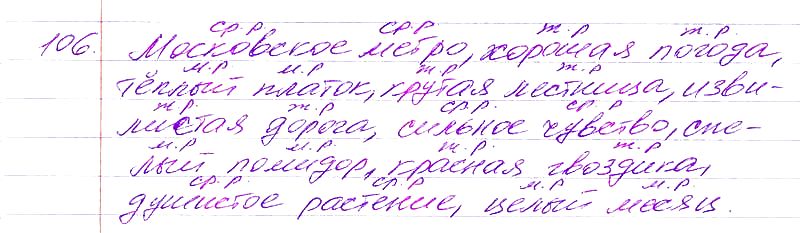 ср.р ср.р ж.р ж.р
106. Московское метро, хорошая погода,
м.р м.р ж.р ж.р
тёплый платок, крутая лестница, изви-
ж.р. ж.р ср.р. ср.р
листая дорога, сильное чувство, спе-
м.р м.р ж.р. ж.р
лый помидор, красная гвоздика,
ср.р. ср.р. м.р м.р.
душистое растение, целый месяц.